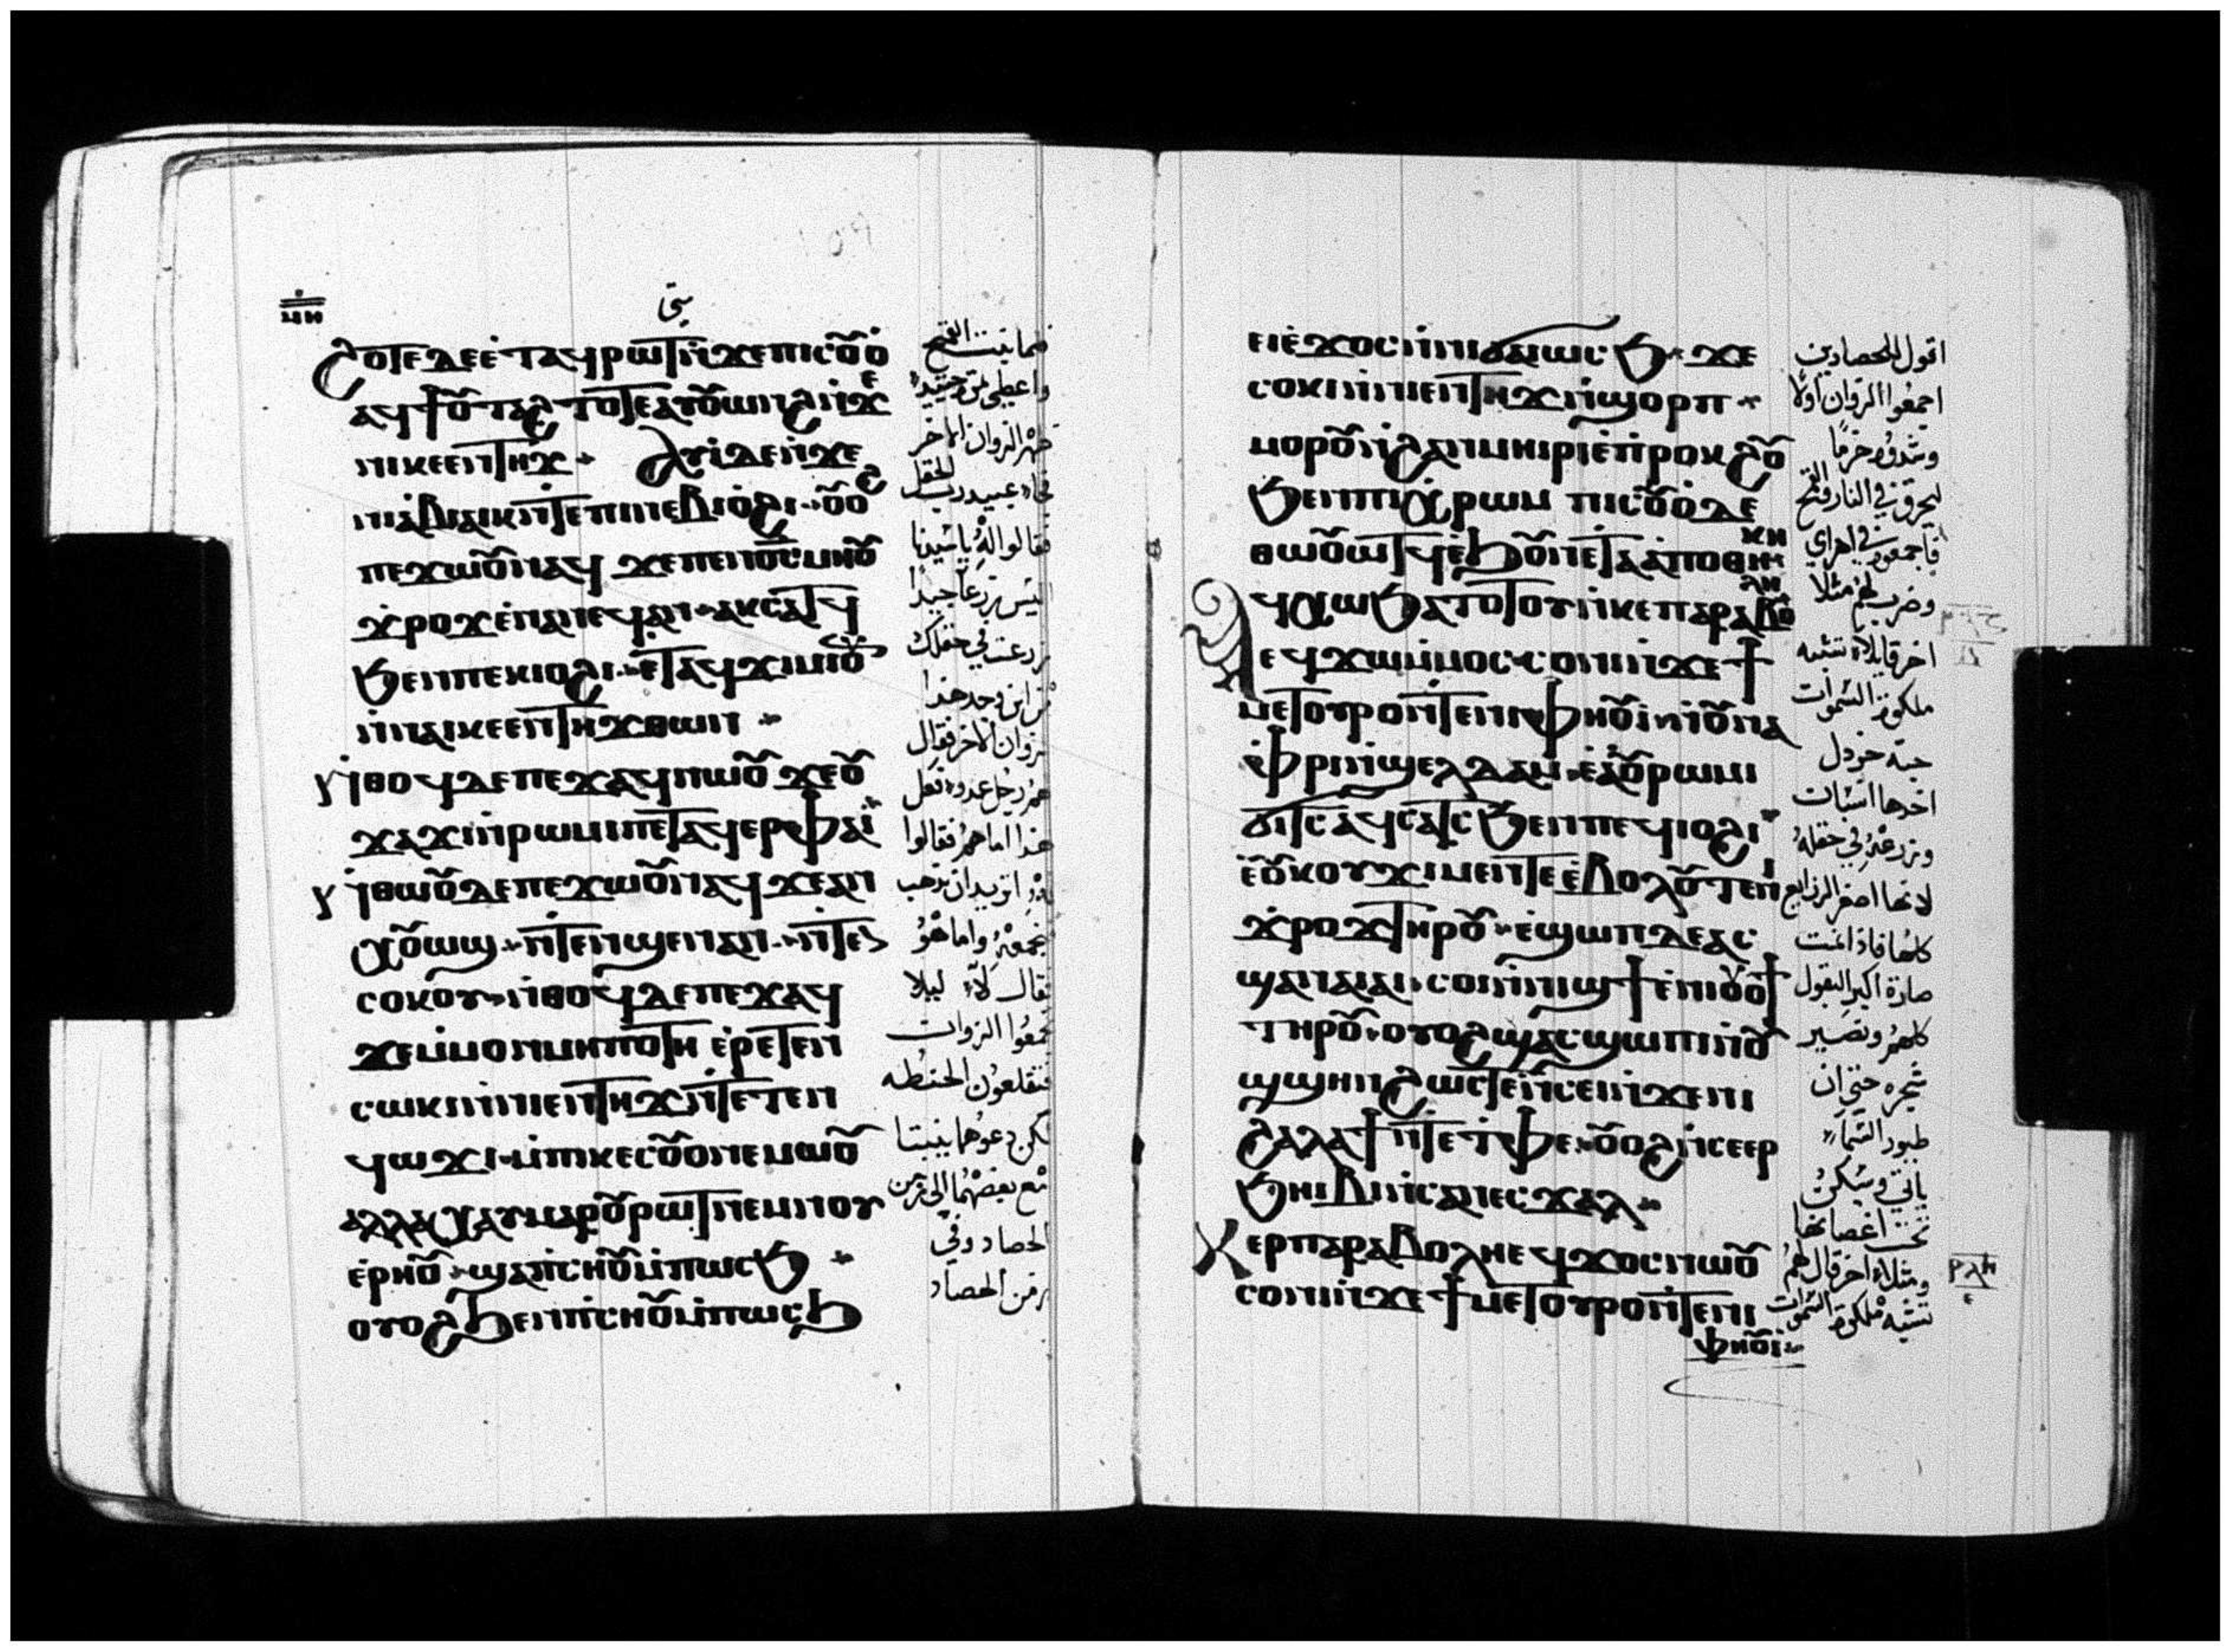 ⲙⲏ
متى
ϩⲟⲧⲉ ⲇⲉ ⲉⲧⲁϥⲣⲱⲧ ⲛϫⲉ ⲡⲓⲥⲟⲩⲟ
ⲁϥϯⲟⲩⲧⲁϩ ⲧⲟⲧⲉ ⲁⲩⲟⲩⲱⲛϩ ⲛϫⲉ
ⲛⲓⲕⲉⲉⲛⲧⲏϫ ⲁⲩⲓ ⲇⲉ ⲛϫⲉ
ⲛⲓⲉⲃⲓⲁⲓⲕ ⲛⲧⲉ ⲡⲓⲛⲉⲃⲓⲟϩⲓ ⲟⲩⲟϩ
ⲡⲉϫⲱⲟⲩ ⲛⲁϥ ϫⲉ ⲡⲉⲛⲟⲥ ⲙⲏ ⲟⲩ
ϫⲣⲟϫ ⲉⲛⲁⲛⲉϥ ⲁⲛ ⲁⲕⲥⲁⲧϥ
ϧⲉⲛ ⲡⲉⲕⲓⲟϩⲓ ⲉⲧⲁϥϫⲓⲙⲓ ⲟⲩⲛ
ⲛⲛⲁⲓⲕⲉⲉⲛⲧⲏϫ ⲑⲱⲛ
ⲛⲑⲟϥ ⲇⲉ ⲡⲉϫⲁϥ ⲛⲱⲟⲩ ϫⲉ ⲟⲩ
ϫⲁϫⲓ ⲛⲣⲱⲙⲓ ⲡⲉⲧⲁϥⲉⲣ ⲫⲁⲓ
ⲛⲑⲱⲟⲩ ⲇⲉ ⲡⲉϫⲱⲟⲩ ⲛⲁϥ ϫⲉ ⲁⲛ
ⲭⲟⲩⲱϣ ⲛⲧⲉⲛϣⲉⲛⲁⲛ ⲛⲧⲉⲛ
ⲥⲟⲕⲟⲩ ⲛⲑⲟϥ ⲇⲉ ⲡⲉϫⲁϥ
ϫⲉ ⲙⲙⲟⲛ ⲙⲏⲡⲟⲧⲏ ⲉⲣⲉⲧⲉⲛ
ⲥⲱⲕⲓ ⲛⲛⲓⲉⲛⲧⲏϫ ⲛⲧⲉⲧⲉⲛ
ϥⲱϫⲓ ⲙⲡⲓⲕⲉⲥⲟⲩⲟ ⲛⲉⲙⲱⲟⲩ
ⲁⲗⲗⲁ ⲭⲁⲩ ⲙⲁⲣⲟⲩⲣⲱⲧ ⲛⲉⲙ ⲛⲟⲩ
ⲉⲣⲏⲟⲩ ϣⲁ ⲡⲥⲏⲟⲩ ⲙⲡⲱⲥϧ
ⲟⲩⲟϩ ϧⲉⲛ ⲡⲥⲏⲟⲩ ⲙⲡⲱⲥϧ
فلما نبت القمح
فقالوا له يا سيدنا
اليس زرعا جيدا
زرعت في حقلك
من اين وجد هذا
هذا اما هم فقالوا
له اتريد ان نذهب
قال لا ليلا
تجمعوا الزوان
فتقلعون الحنطه
لكن دعوهما ينبتا
مع بعضهما الى زمن
الحصاد وفي
زمن الحصاد
ⲉⲓⲉϫⲟⲥ ⲛⲛⲓϭⲁⲓⲱⲥϧ ϫⲉ
ⲥⲟⲕⲓ ⲛⲛⲓⲉⲛⲧⲏϫ ⲛϣⲟⲣⲡ
ⲙⲟⲣⲟⲩ ⲛϩⲁⲛⲙⲏⲓⲣⲓ ⲉⲡⲣⲟⲕϩⲟⲩ
ϧⲉⲛ ⲡⲓⲭⲣⲱⲙ ⲡⲓⲥⲟⲩⲟ ⲇⲉ
ⲑⲱⲟⲩⲱⲧϥ ⲉϧⲟⲩⲛ ⲉⲧⲁⲁⲡⲟⲑⲏⲕⲏ
ⲁϥⲭⲱ ϧⲁⲧⲟⲧⲟⲩ ⲛⲕⲉⲡⲁⲣⲁⲃⲟⲗⲏ
ⲉϥϫⲱ ⲙⲙⲟⲥ ⲥⲟⲛⲓ ⲛϫⲉ ϯ
ⲙⲉⲧⲟⲩⲣⲟ ⲛⲧⲉ ⲛⲓⲫⲏⲟⲩⲓ ⲛⲟⲩⲛⲁ
ⲫⲣⲓ ⲛϣⲉⲗⲧⲁⲙ ⲉⲁⲟⲩⲣⲱⲙⲓ
ϭⲓⲧⲥ ⲁϥⲥⲁⲧⲥ ϧⲉⲛ ⲡⲉϥⲓⲟϩⲓ
ⲉⲟⲩⲕⲟⲩϫⲓ ⲙⲉⲛ ⲧⲉ ⲉⲃⲟⲗⲟⲩⲧⲉ ⲛⲓ
ϫⲣⲟϫ ⲧⲏⲣⲟⲩ ⲉϣⲱⲡ ⲇⲉ ⲁⲥ
ϣⲁⲛⲁⲓⲁⲓ ⲥⲟⲛⲓϣϯ ⲉⲛⲓⲟⲩⲟϯ
ⲧⲏⲣⲟⲩ ⲟⲩⲟϩ ϣⲁⲥϣⲱⲡⲓ ⲛⲟⲩ
ϣϣⲏⲛ ϩⲱⲥⲧⲉ ⲛⲥⲉⲓ ⲛϫⲉ ⲛⲓ
ϩⲁⲗⲁϯ ⲛⲧⲉ ⲧⲫⲉ ⲟⲩⲟϩ ⲛⲥⲉⲉⲣ
ϧⲏⲓⲃⲓ ⲛⲓⲥⲁ ⲛⲉⲥϫⲁⲗ
ⲕⲉⲡⲁⲣⲁⲃⲟⲗⲏ ⲉϥϫⲟⲥ ⲛⲱⲟⲩ
ⲥⲟⲛⲓ ⲛϫⲉ ϯⲙⲉⲧⲟⲩⲣⲟ ⲛⲧⲉ ⲛⲓ
ⲫⲏⲟⲩⲓ
اقول للحصادين
اجمعوا الزوان اولا
وشدوه حزما
ليحرق في النار والقمح
فاجمعوه في اهراي
وضرب لهم مثلا
اخر قايلا تشبه
ملكوت السموات
حبة خردل
اخدها انسان
وزرعها في حقله
كلها فاذا نمت
صارة اكبر البقول
كلهم وتصير
شجره حتى ان
طيور السماء
تاتي وتسكن
تحت اغصانها
ومثلا اخر قال لهم
تشبه ملكوت السموات
ⲣⲗⲏ